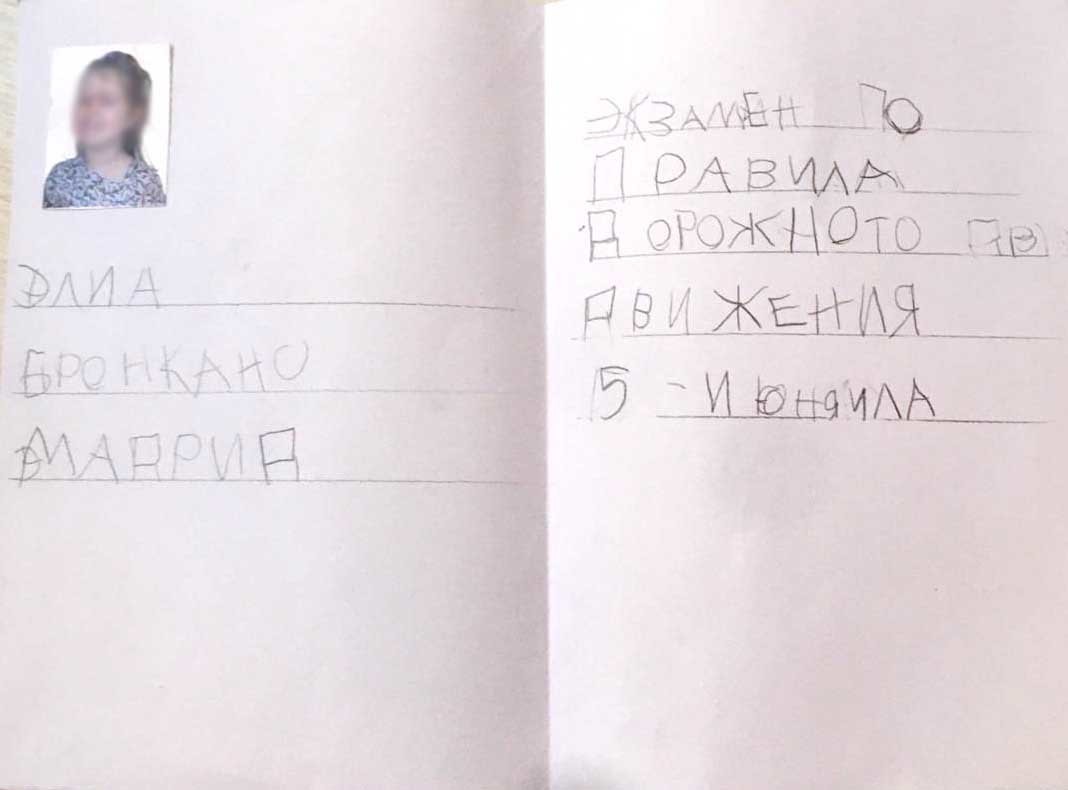 ЭЛИА
БРОНКАНО
МАДРИД
ЭКЗАМЕН ПО
ПРАВИЛА
ДОРОЖНОТО
ДВИЖЕНИЯ
5 - ИЮНЯ